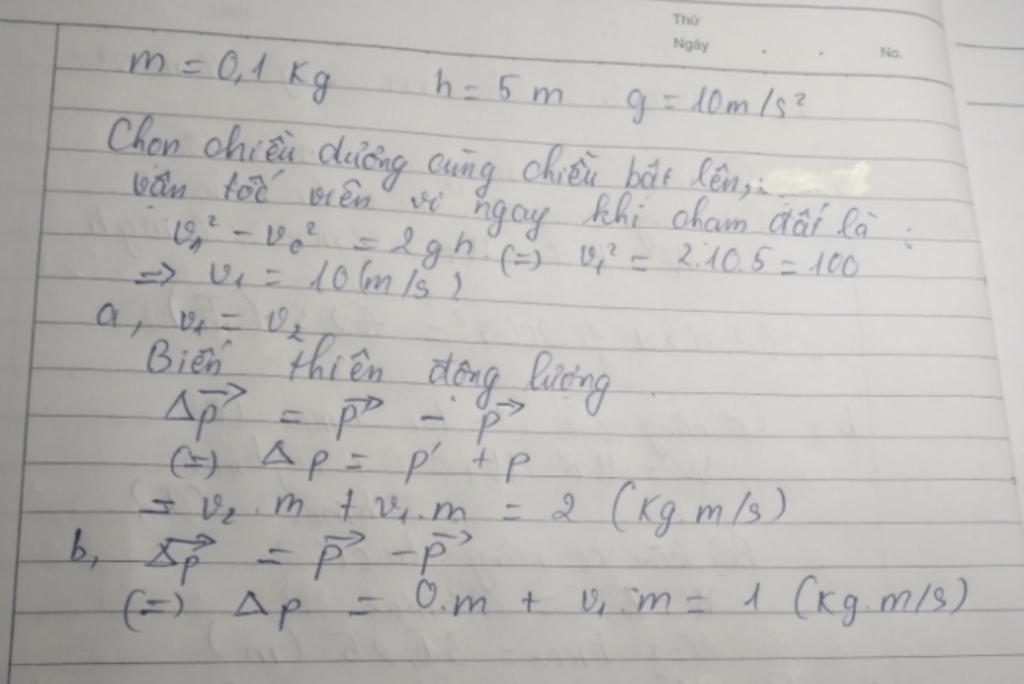 Thứ
Ngày . . No.
m = 0,1 Kg h = 5 m g = 10m/s²
Chọn chiều dương cùng chiều bật lên,
vận tốc viên vi ngay khi chạm đất là :
v₁² - v₀² = 2gh (=) v₁² = 2.10.5 = 100
=> v₁ = 10(m/s)
a, v₁ = v₂
Biến thiên động lượng
Δp⃗ = p⃗' - p⃗
(=) Δp = p' + p
= v₂.m + v₁.m = 2 (Kg.m/s)
b, Δp⃗ = p⃗' - p⃗
(=) Δp = 0.m + v₁.m = 1 (Kg.m/s)